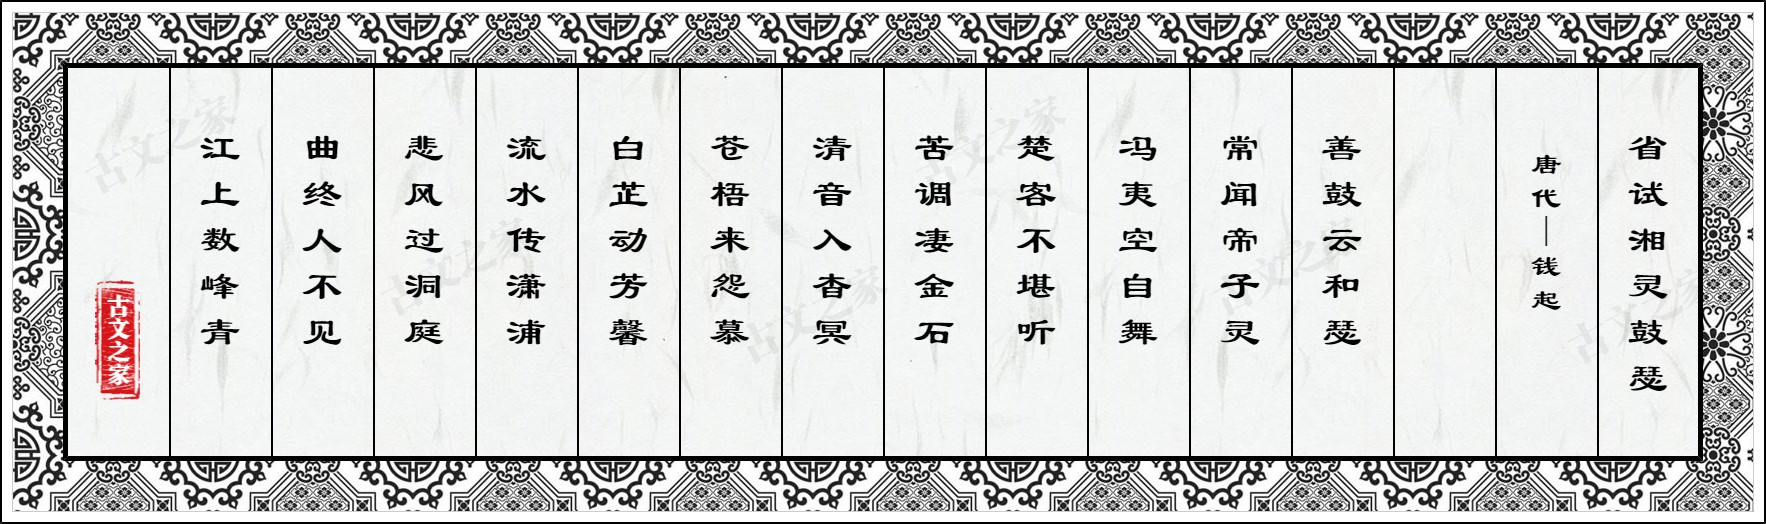 省试湘灵鼓瑟
唐代—钱起
善鼓云和瑟
常闻帝子灵
冯夷空自舞
楚客不堪听
苦调凄金石
清音入杳冥
苍梧来怨慕
白芷动芳馨
流水传潇浦
悲风过洞庭
曲终人不见
江上数峰青
古文之家